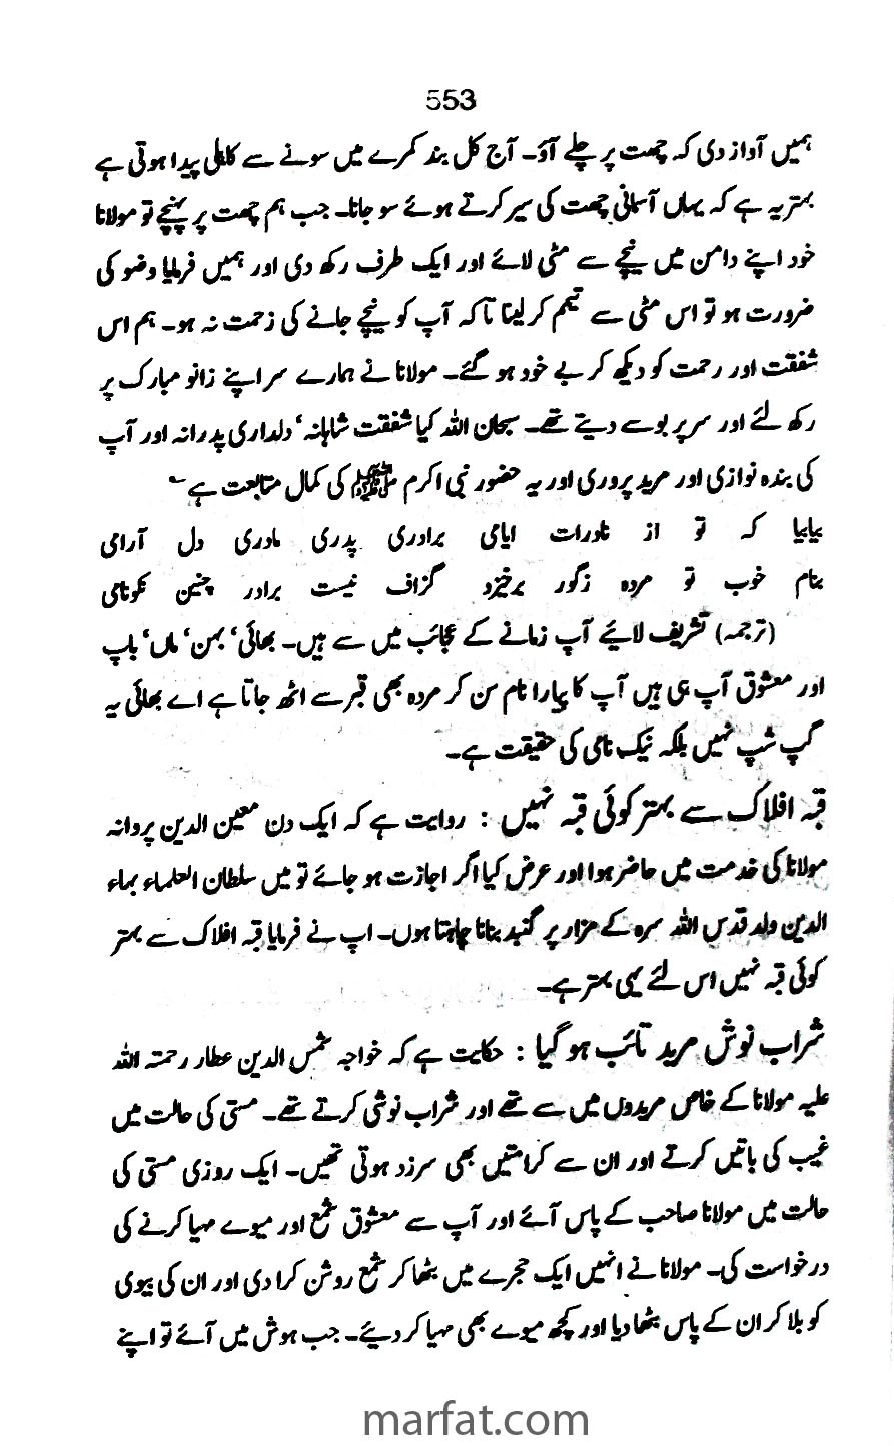 553
ہمیں آواز دی کہ چھت پر چلے آؤ۔ آج کل بند کمرے میں سونے سے کاہلی پیدا ہوتی ہے
بہتر یہ ہے کہ یہاں آسمانی چھت کی سیر کرتے ہوئے سو جانا۔ جب ہم چھت پر پہنچے تو مولانا
خود اپنے دامن میں نیچے سے مٹی لائے اور ایک طرف رکھ دی اور ہمیں فرمایا وضو کی
ضرورت ہو تو اس مٹی سے تیمم کر لینا تاکہ آپ کو نیچے جانے کی زحمت نہ ہو۔ ہم اس
شفقت اور رحمت کو دیکھ کر بے خود ہو گئے۔ مولانا نے ہمارے سر اپنے زانو مبارک پر
رکھ لئے اور سر پر بوسے دیتے تھے۔ سبحان اللہ کیا شفقت شاہانہ، دلداری پدرانہ اور آپ
کی بندہ نوازی اور مرید پروری اور یہ حضور نبی اکرم ﷺ کی کمال متابعت ہے ؂
بیابیا کہ تو از نادرات ایامی برادری پدری مادری دل آرامی
بنام خوب تو مردہ زگور برخیزد گزاف نیست برادر چنین نکونامی
(ترجمہ) تشریف لائیے آپ زمانے کے عجائب میں سے ہیں۔ بھائی، بہن، ماں، باپ
اور معشوق آپ ہی ہیں آپ کا پیارا نام سن کر مردہ بھی قبر سے اٹھ جاتا ہے اے بھائی یہ
گپ شپ نہیں بلکہ نیک نامی کی حقیقت ہے۔
قبہ افلاک سے بہتر کوئی قبہ نہیں : روایت ہے کہ ایک دن معین الدین پروانہ
مولانا کی خدمت میں حاضر ہوا اور عرض کیا اگر اجازت ہو جائے تو میں سلطان العلماء بہاء
الدین ولد قدس اللہ سرہ کے مزار پر گنبد بنانا چاہتا ہوں۔ اپ نے فرمایا قبہ افلاک سے بہتر
کوئی قبہ نہیں اس لئے یہی بہتر ہے۔
شراب نوش مرید تائب ہو گیا : حکایت ہے کہ خواجہ شمس الدین عطار رحمتہ اللہ
علیہ مولانا کے خاص مریدوں میں سے تھے اور شراب نوشی کرتے تھے۔ مستی کی حالت میں
غیب کی باتیں کرتے اور ان سے کرامتیں بھی سرزد ہوتی تھیں۔ ایک روزی مستی کی
حالت میں مولانا صاحب کے پاس آئے اور آپ سے معشوق شمع اور میوے مہیا کرنے کی
درخواست کی۔ مولانا نے انہیں ایک حجرے میں بٹھا کر شمع روشن کرا دی اور ان کی بیوی
کو بلا کر ان کے پاس بٹھا دیا اور کچھ میوے بھی مہیا کر دیئے۔ جب ہوش میں آئے تو اپنے
marfat.com